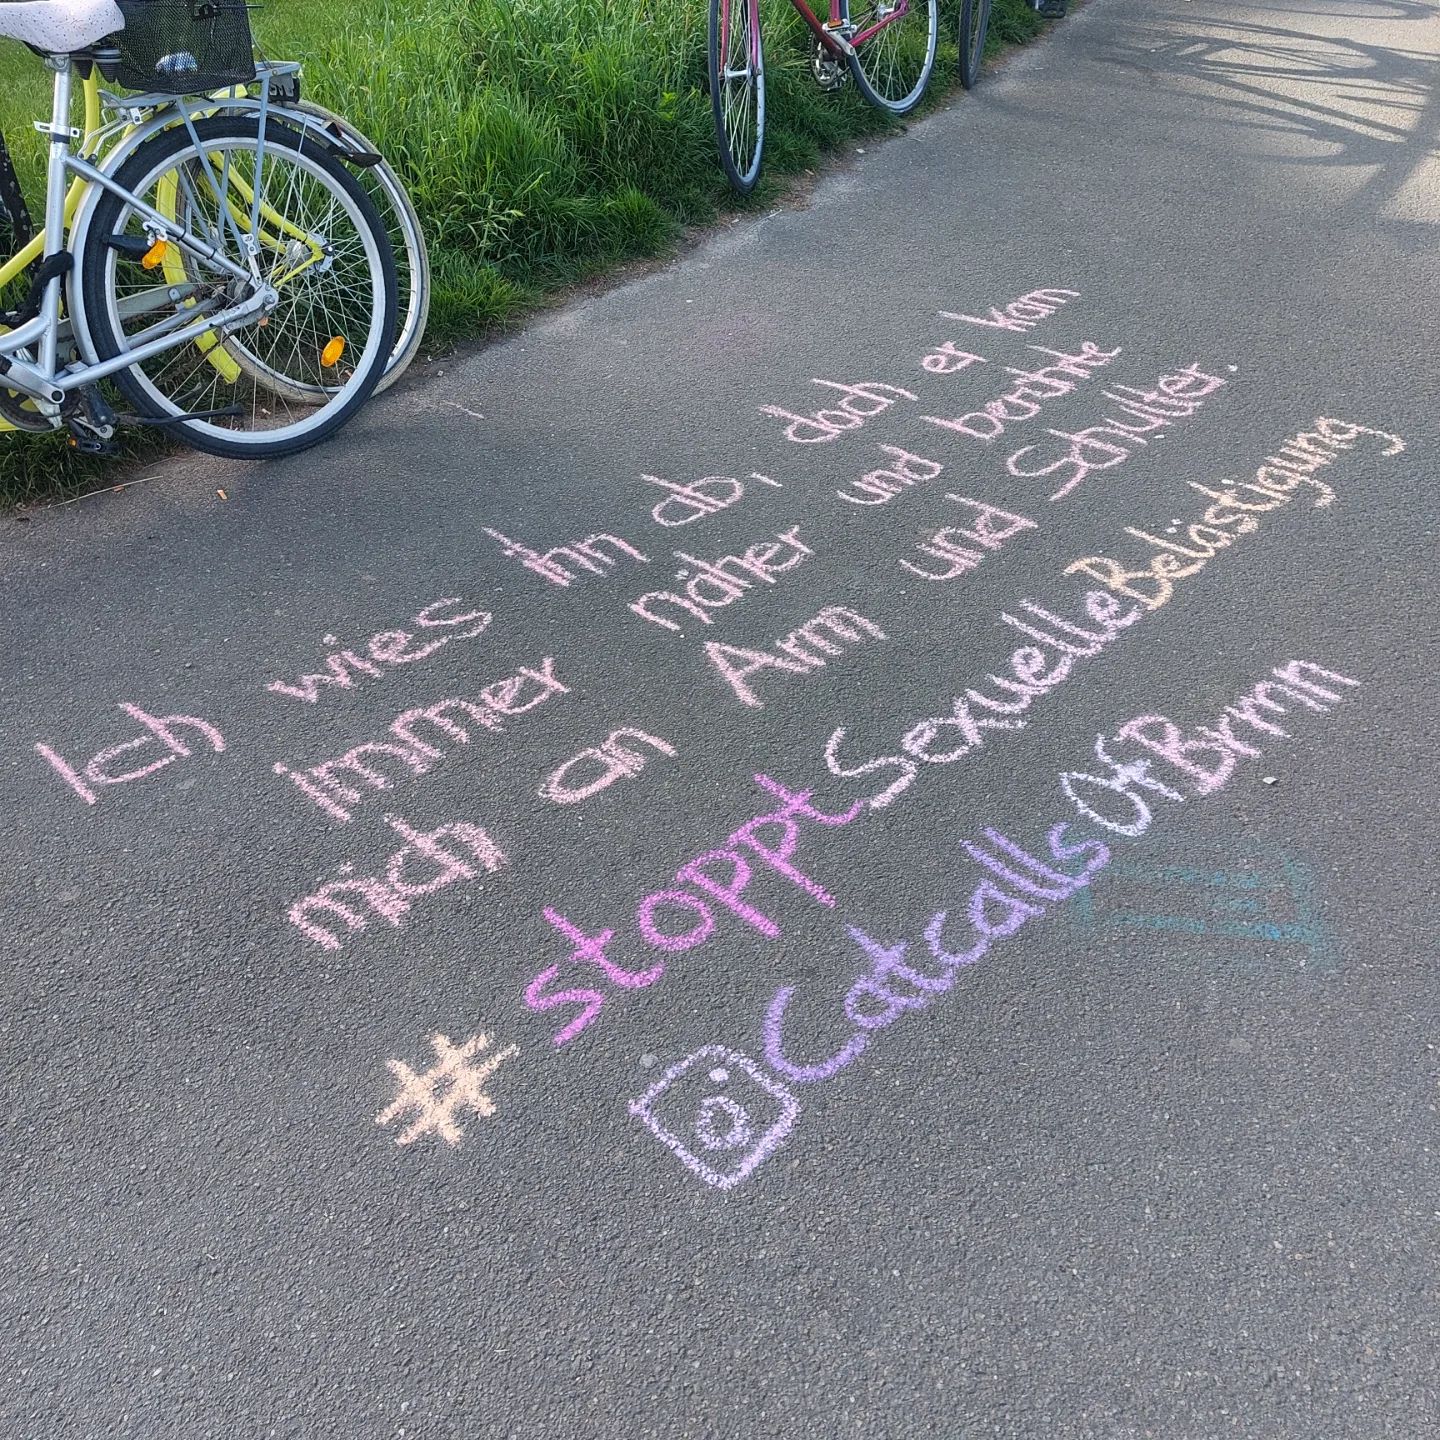 Ich wies ihn ab, doch er kam
immer näher und berührte
mich an Arm und Schulter.
#stopptSexuelleBelästigung
CatcallsOfBrmn